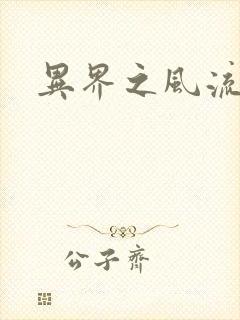 異界之風流
公子齊